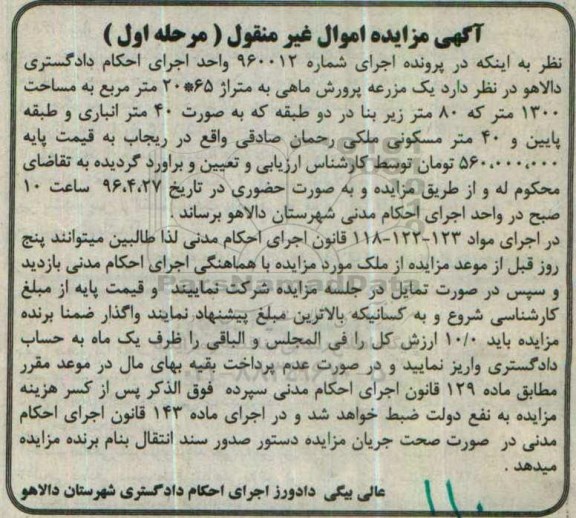 آگهی مزایده اموال غیر منقول ( مرحله اول )
نظر به اینکه در پرونده اجرای شماره ۹۶۰۰۱۲ واحد اجرای احکام دادگستری
دالاهو در نظر دارد یک مزرعه پرورش ماهی به متراژ ۶۵*۲۰ متر مربع به مساحت
۱۳۰۰ متر که ۸۰ متر زیر بنا در دو طبقه که به صورت ۴۰ متر انباری و طبقه
پایین و ۴۰ متر مسکونی ملکی رحمان صادقی واقع در ریجاب به قیمت پایه
۵۶۰,۰۰۰,۰۰۰ تومان توسط کارشناس ارزیابی و تعیین و براورد گردیده به تقاضای
محکوم له و از طریق مزایده و به صورت حضوری در تاریخ ۹۶.۴.۲۷ ساعت ۱۰
صبح در واحد اجرای احکام مدنی شهرستان دالاهو برساند .
در اجرای مواد ۱۲۳-۱۲۲-۱۱۸ قانون اجرای احکام مدنی لذا طالبین میتوانند پنج
روز قبل از موعد مزایده از ملک مورد مزایده با هماهنگی اجرای احکام مدنی بازدید
و سپس در صورت تمایل در جلسه مزایده شرکت نماییند و قیمت پایه از مبلغ
کارشناسی شروع و به کسانیکه بالاترین مبلغ پیشنهاد نمایند واگذار ضمنا برنده
مزایده باید ۱۰/۰ ارزش کل را فی المجلس و الباقی را ظرف یک ماه به حساب
دادگستری واریز نمایید و در صورت عدم پرداخت بقیه بهای مال در موعد مقرر
مطابق ماده ۱۲۹ قانون اجرای احکام مدنی سپرده فوق الذکر پس از کسر هزینه
مزایده به نفع دولت ضبط خواهد شد و در اجرای ماده ۱۴۳ قانون اجرای احکام
مدنی در صورت صحت جریان مزایده دستور صدور سند انتقال بنام برنده مزایده
میدهد .
عالی بیگی دادورز اجرای احکام دادگستری شهرستان دالاهو